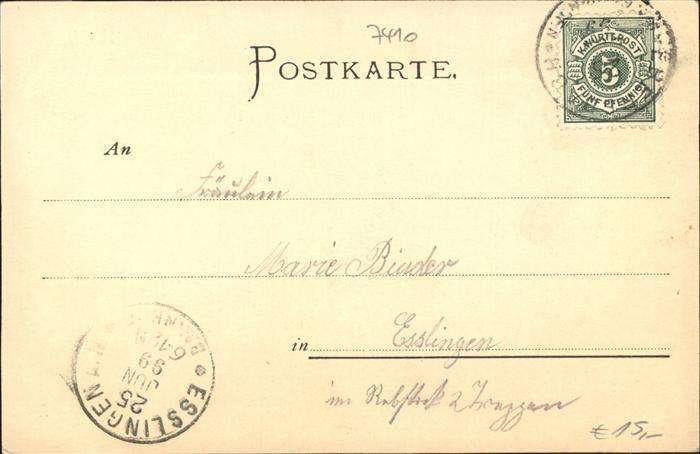 7410
POSTKARTE.
K. WÜRTT. POST
5
FÜNF PFENNIG
An
Fräulein
Marie Binder
in Esslingen
im Rebstock 2 Treppen
ESSLINGEN
25
JUN
99
€ 15,-